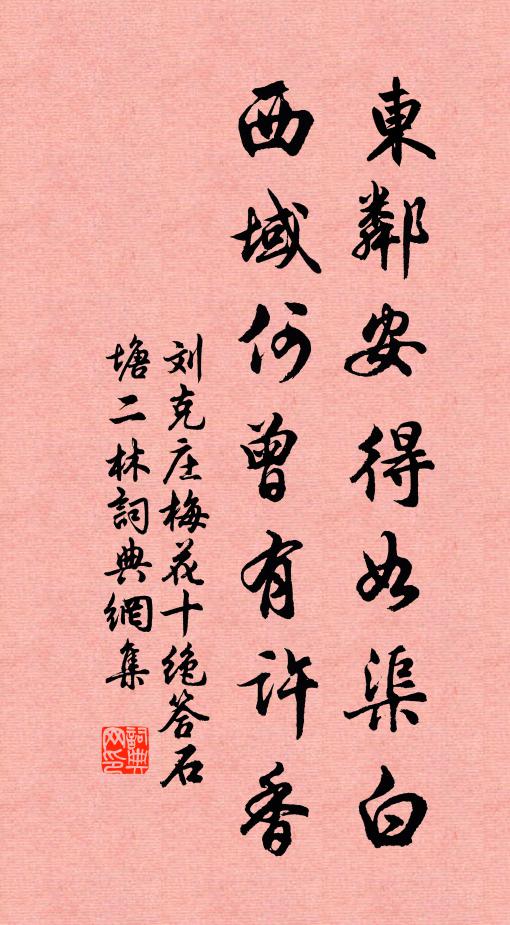 東鄰安得如渠白
西域何曾有許香
刘克庄梅花十绝答石
塘二林詞典網集
詞典网印